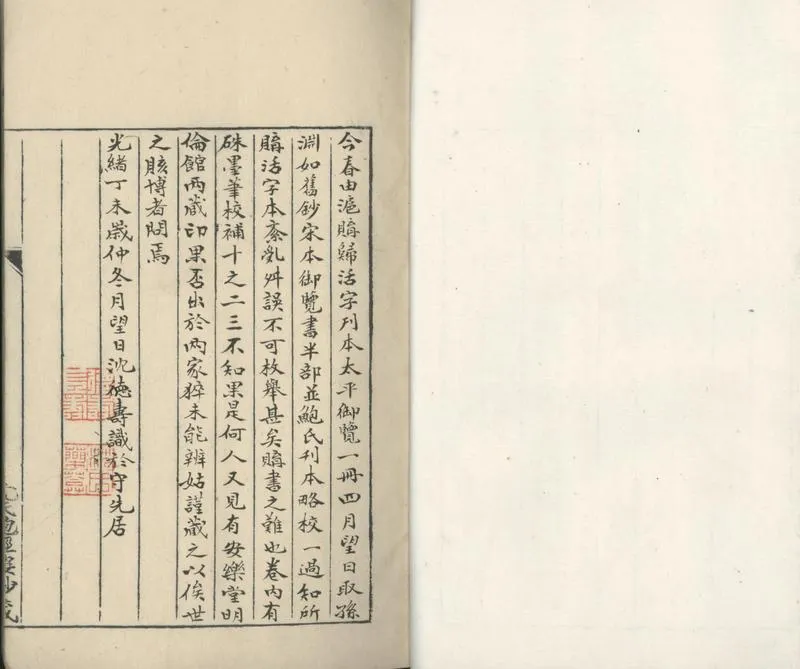 今春由滬購歸活字刋本太平御覽一冊四月望日取孫
淵如舊鈔宋本御覽書半部並鮑氏刋本略校一過知所
購活字本紊亂舛誤不可枚舉甚矣購書之難也卷內有
硃墨筆校補十之二三不知果是何人又見有安樂堂明
倫館兩藏印果否出於兩家猝未能辨姑謹藏之以俟世
之賅博者問焉
光緒丁未嵗仲冬月望日沈德壽識於守先居